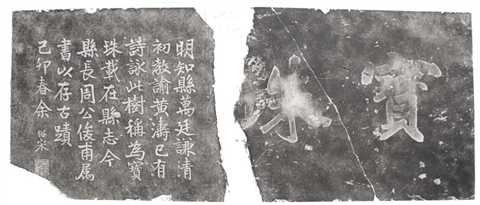 寶珠
明知縣萬廷謙清
初教諭黃濤已有
詩詠此樹稱為寶
珠載在縣志今
縣長周公俊甫属
書以存古蹟
己卯春余紹宋